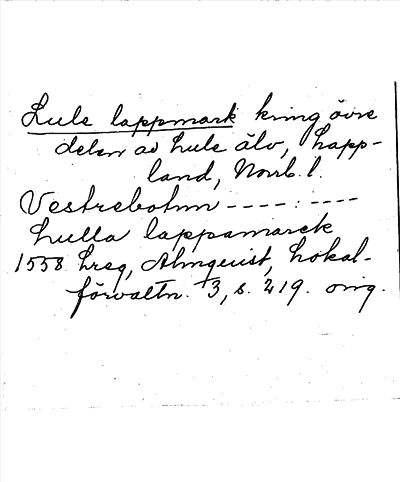 Lule lappmark kring övre
delen av Lule älv, Lapp-
land, Norrb. l.
Vestrebotnn ----:----
Lulla lappamarck
1558. hreg, Almquist, Lokal-
förvaltn. 3, s. 219. orig.